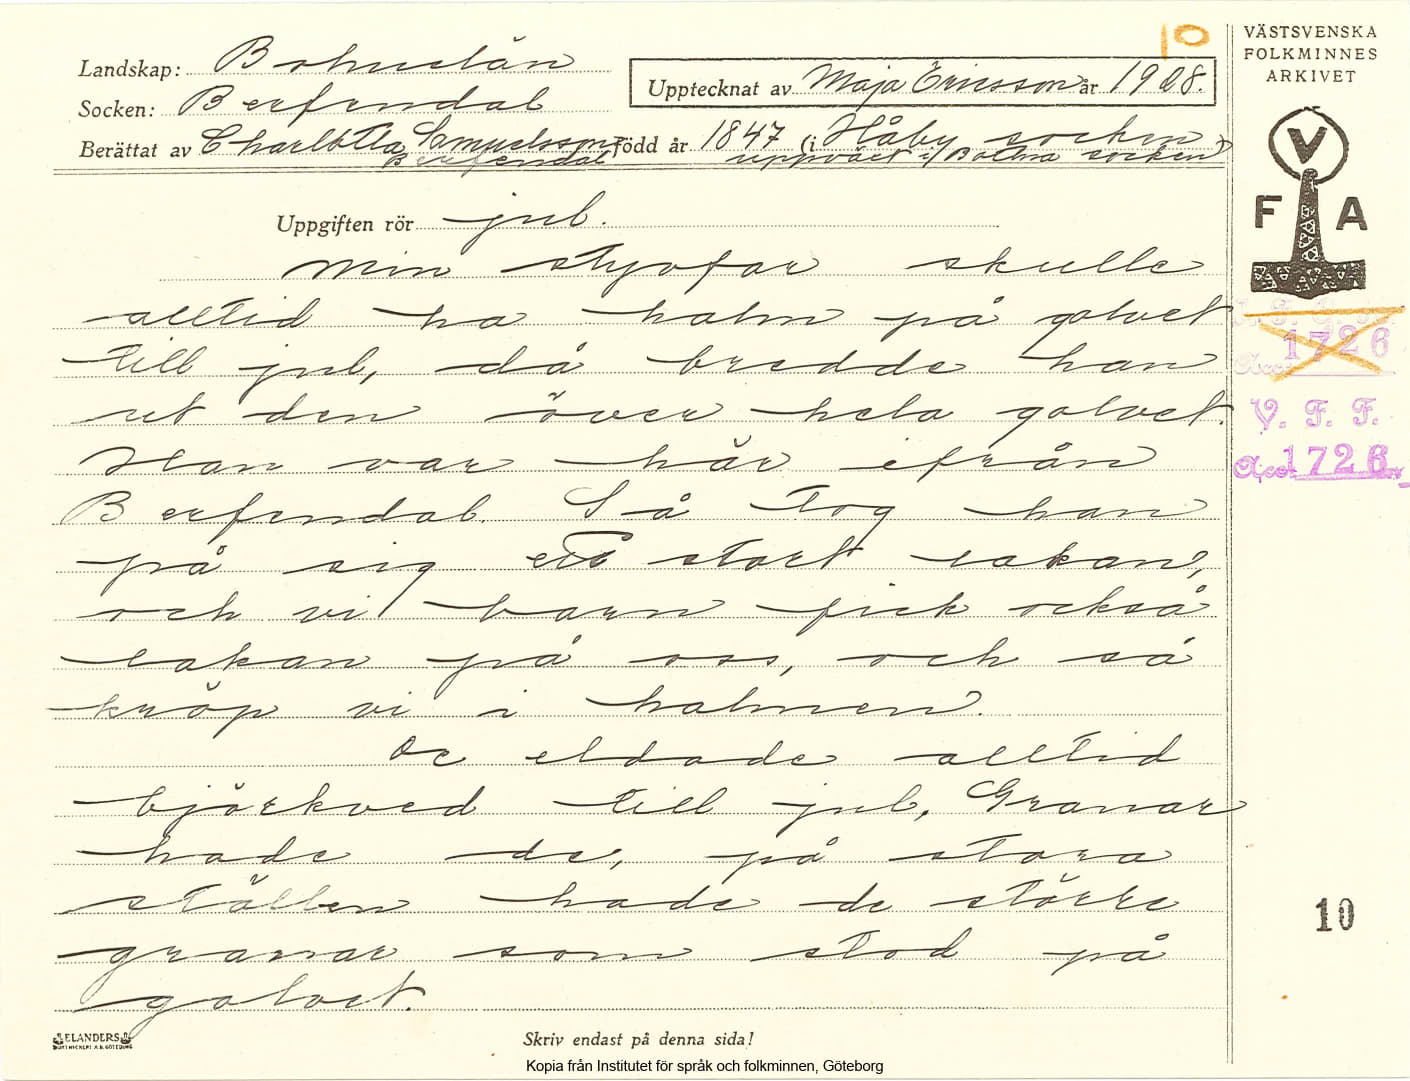 10
VÄSTSVENSKA
FOLKMINNES
ARKIVET
Landskap: Bohuslän
Socken: Berfendal
Upptecknat av Maja Ericsson år 1928.
Berättat av Charlotta Samuelsson född år 1847 (i Håby socken
Berfendal uppväxt i Bottna socken)
V
F A
Uppgiften rör jul.
Min styvfar skulle
alltid ha halm på golvet
till jul, då bredde han
ut den över hela golvet.
Han var här ifrån
Berfendal. Så tog han
på sig ett stort lakan,
och vi barn fick också
lakan på oss, och så
kröp vi i halmen.
De eldade alltid
björkved till jul. Granar
hade de, på stora
ställen hade de större
granar som stod på
golvet.
1726
V. F. F.
Acc. 1726
10
ELANDERS
Skriv endast på denna sida!
Kopia från Institutet för språk och folkminnen, Göteborg